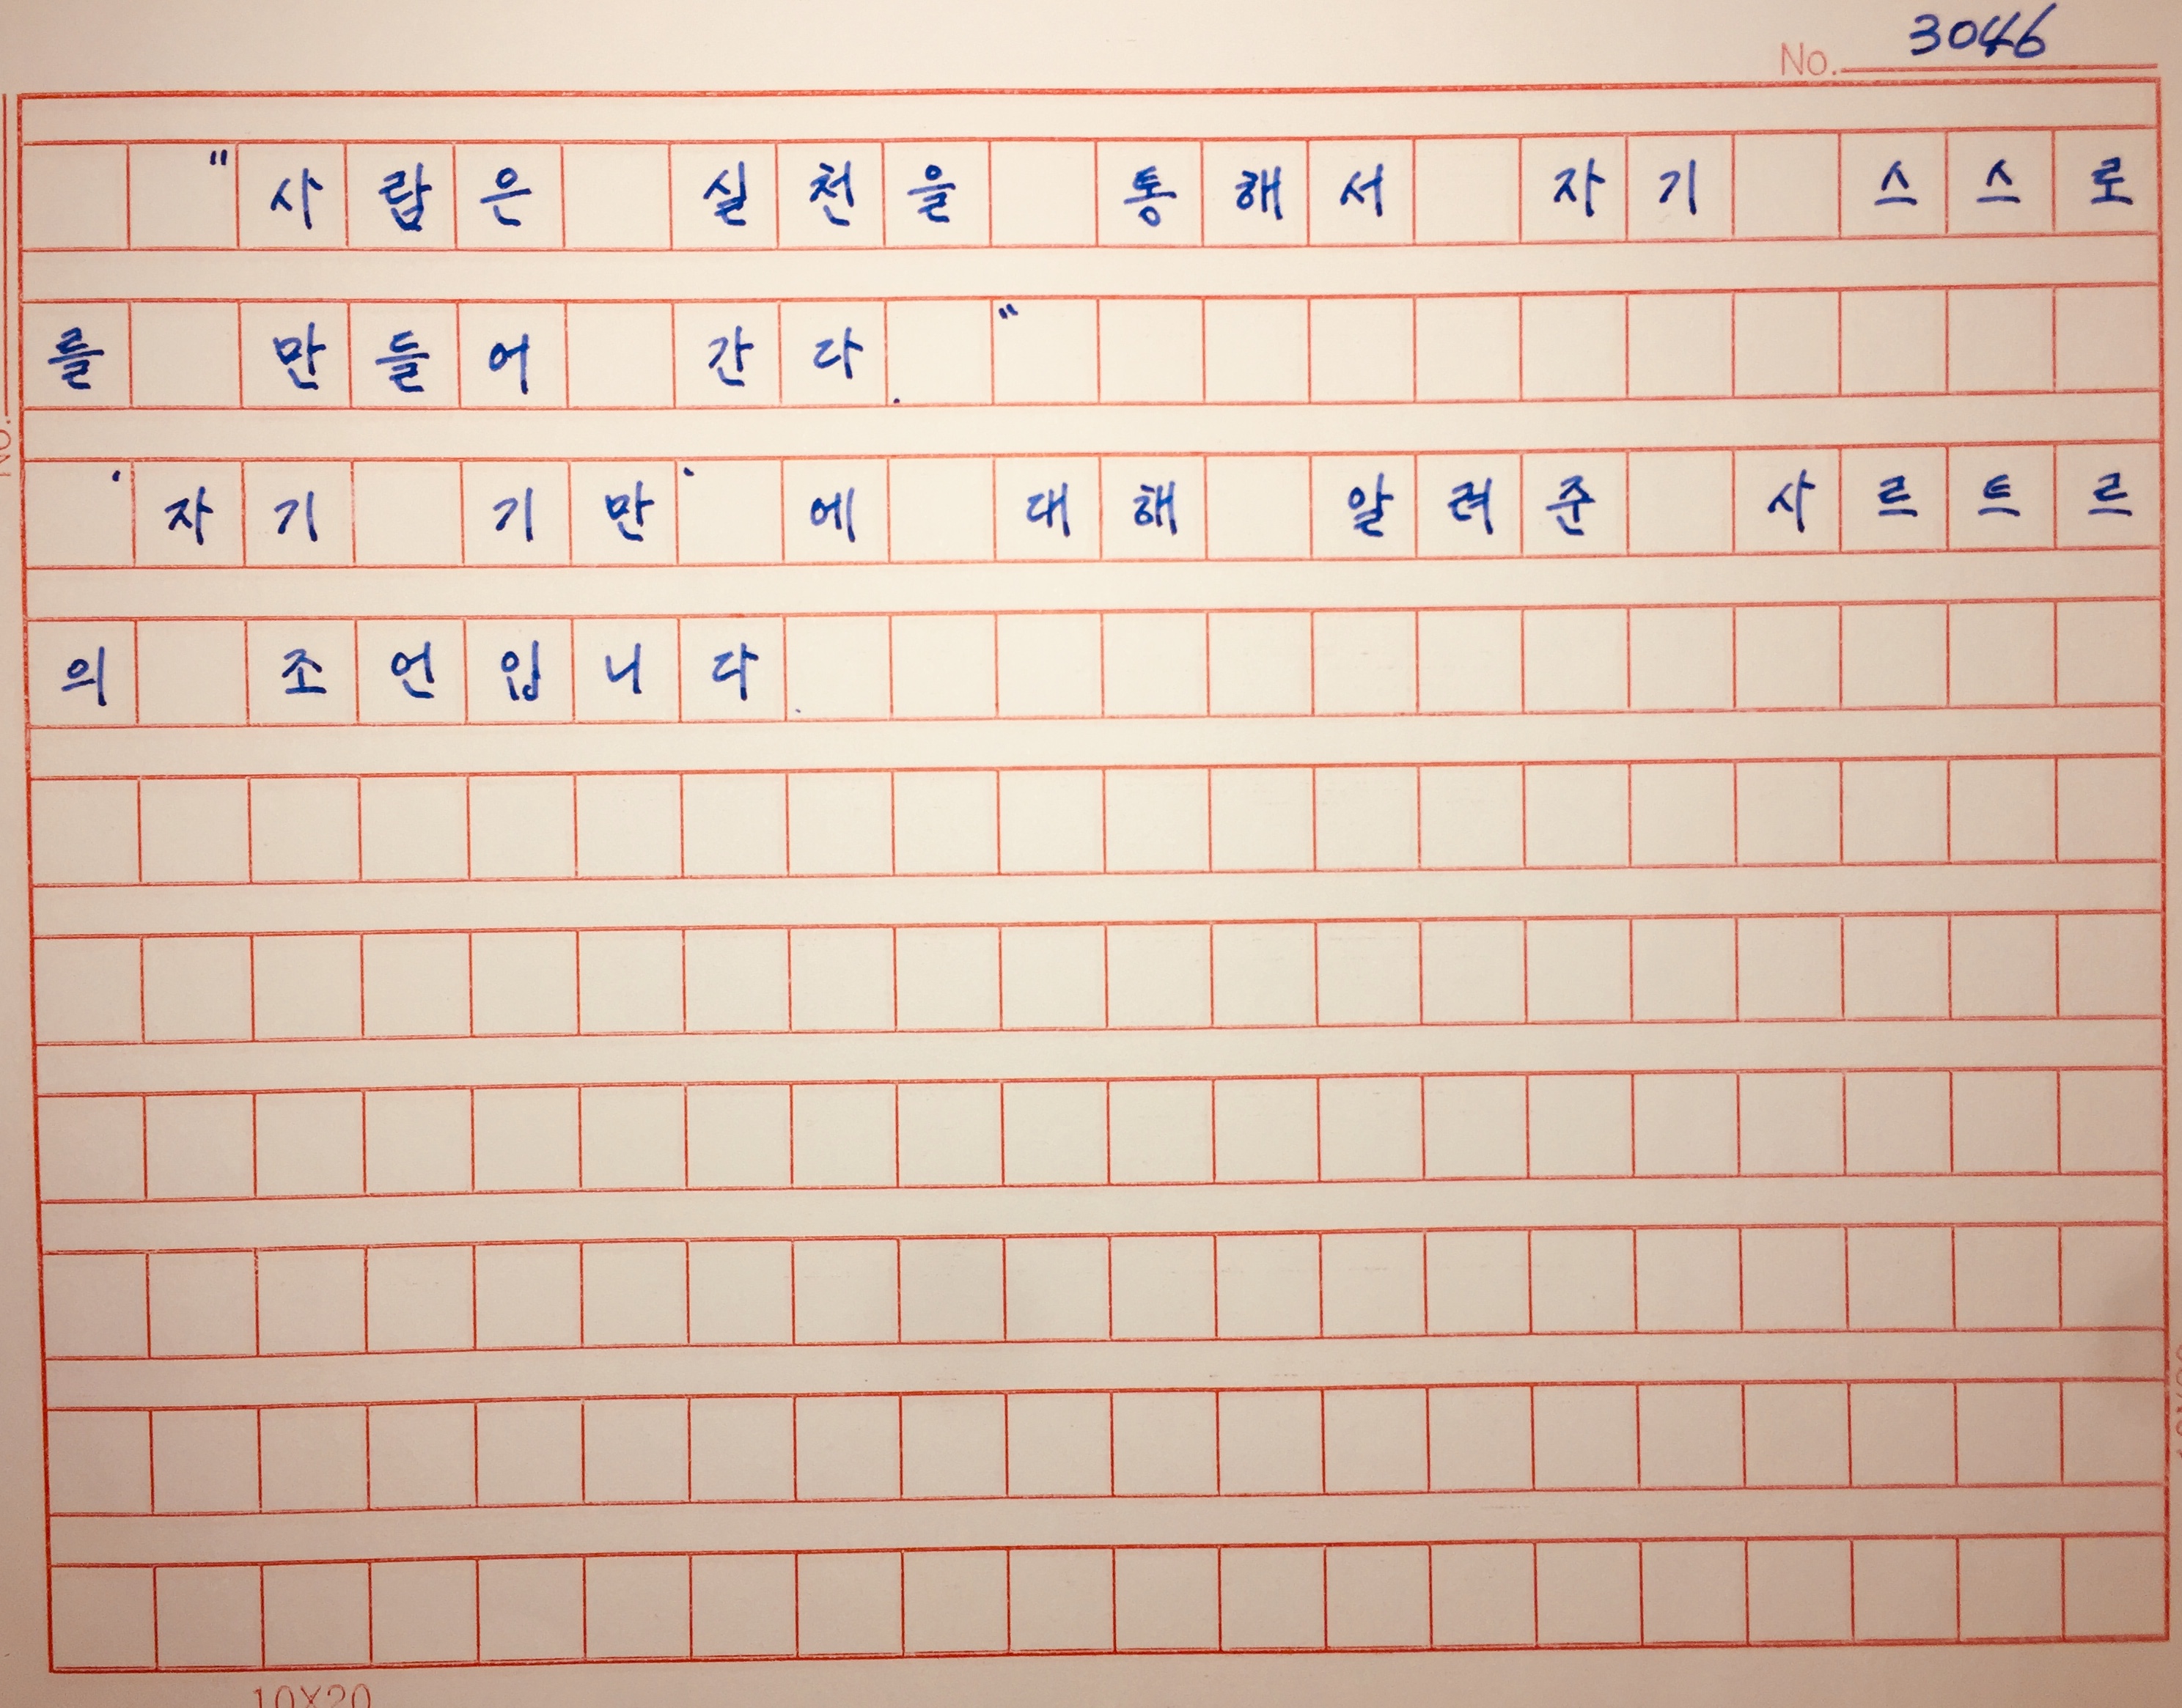 No. 3046
"사람은 실천을 통해서 자기 스스로
를 만들어 간다."
'자기 기만'에 대해 알려준 사르트르
의 조언입니다.
No.
10X20